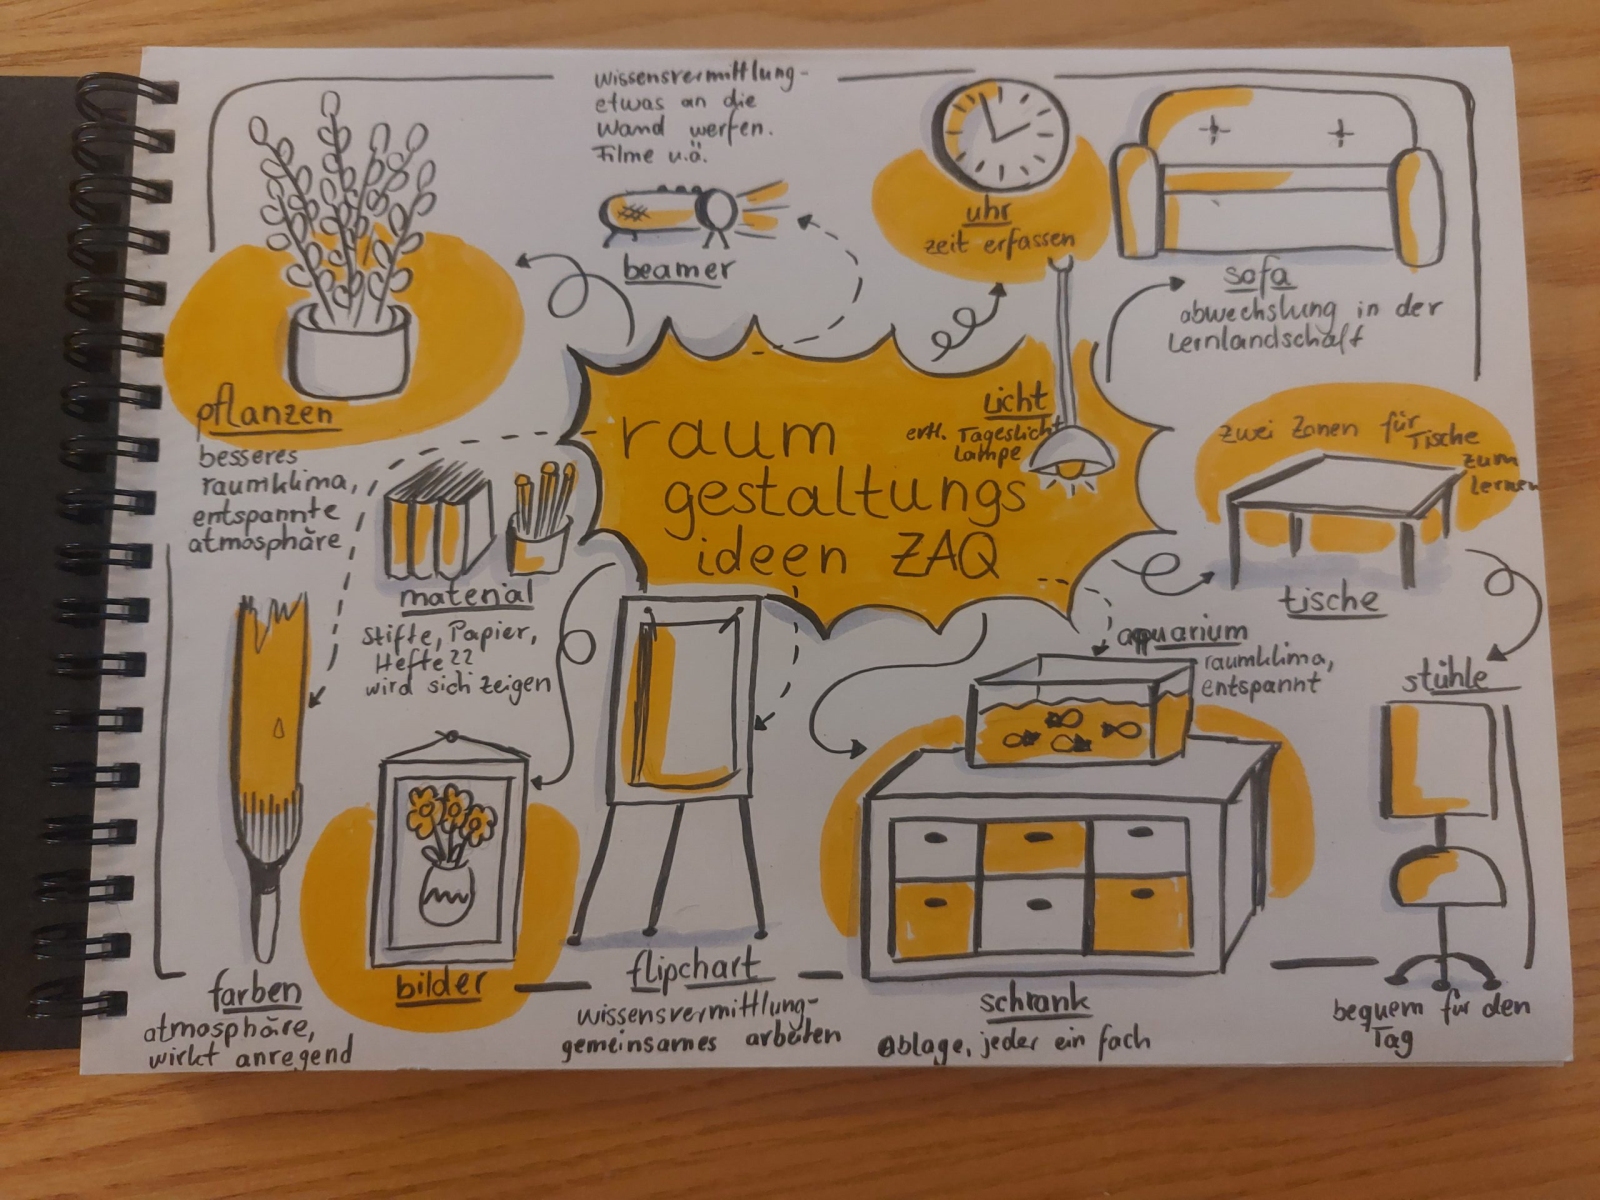 wissensvermittlung-
etwas an die
Wand werfen.
Filme u.ä.
beamer
uhr
zeit erfassen
sofa
abwechslung in der
Lernlandschaft
pflanzen
besseres
raumklima,
entspannte
atmosphäre
raum
gestaltungs
ideen ZAQ
Licht
ertl. Tageslicht
Lampe
zwei Zonen für
Tische
zum
lernen
tische
material
Stifte, Papier,
Hefte??
wird sich zeigen
aquarium
raumklima,
entspannt
stühle
bequem für den
Tag
farben
atmosphäre,
wirkt anregend
bilder
flipchart
wissensvermittlung-
gemeinsames arbeiten
schrank
Ablage, jeder ein fach